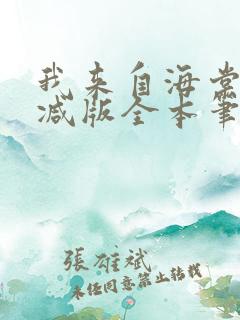 我来自海棠
减版全本笔
張雄斌
未经同意禁止转载